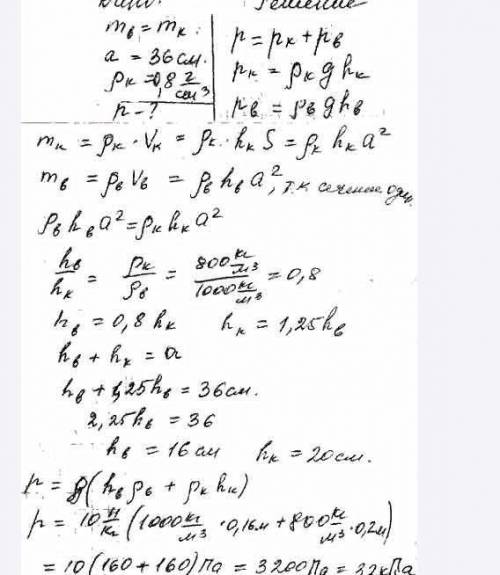 Решение
m_в = m_к.
a = 36 см.
ρ_к = 0,8 г/см³
p - ?
p = p_к + p_в
p_к = ρ_к g h_к
p_в = ρ_в g h_в
m_к = ρ_к · V_к = ρ_к · h_к S = ρ_к h_к a²
m_в = ρ_в V_в = ρ_в h_в a², т.к сечение
ρ_в h_в a² = ρ_к h_к a²
h_в/h_к = ρ_к/ρ_в = 800 кг/м³ / 1000 кг/м³ = 0,8
h_в = 0,8 h_к h_к = 1,25 h_в
h_в + h_к = a
h_в + 1,25 h_в = 36 см.
2,25 h_в = 36
h_в = 16 см h_к = 20 см.
p = g(h_в ρ_в + ρ_к h_к)
p = 10 Н/кг (1000 кг/м³ · 0,16м + 800 кг/м³ · 0,2м)
= 10(160 + 160)Па = 3200Па = 3,2кПа